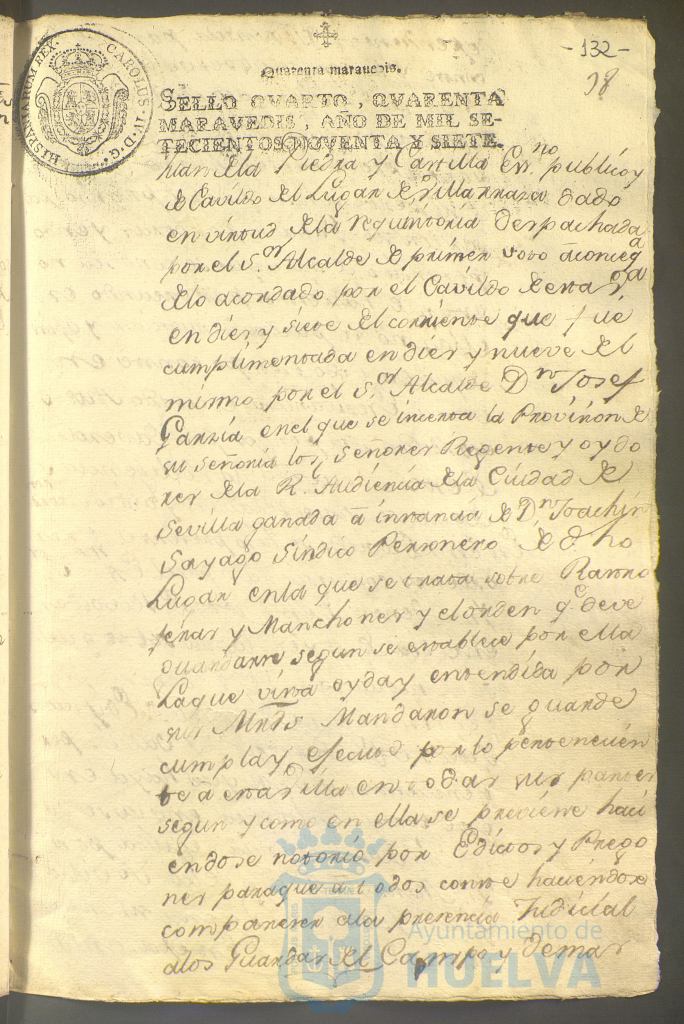 -132-
98
Quarenta marauedis.
HISPANIARUM REX. CAROLUS IV D. G.
SELLO QVARTO, QVARENTA
MARAVEDIS, AÑO DE MIL SE-
TECIENTOS NOVENTA Y SIETE.
llan de la Piedra y Castilla Esn.no publico y
de Cavildo del Lugar de Villarraza dado
en virtud de la requisitoria Despachada
por el S.or Alcalde de primer voto a
de lo acordado por el Cavildo de esta
en diez y siete del corriente que fue
cumplimentada en diez y nueve del
mismo por el S.or Alcalde D.n Josef
Garzia en el que se incerta la Provision de
su señoria los señores Regente y oydo
res de la R. Audiencia de la Ciudad de
Sevilla ganada a instancia de D.n Joachin
Sayago Sindico Personero de dho
Lugar en la que se trata sobre Rastro
feras y Manchones y el orden q.e deve
guardarse segun se establece por ella
La que vista oyda y entendida por
sus Mrds Mandaron se guarde
cumpla y efectue por lo pertenecien
te a esta villa en todas sus partes
segun y como en ella se previene haci
endose notorio por Edictos y Prego
nes para que a todos conste haciendose
comparecer a la presencia Judicial
a los Guardas del Campo y demas
Ayuntamiento de
HUELVA